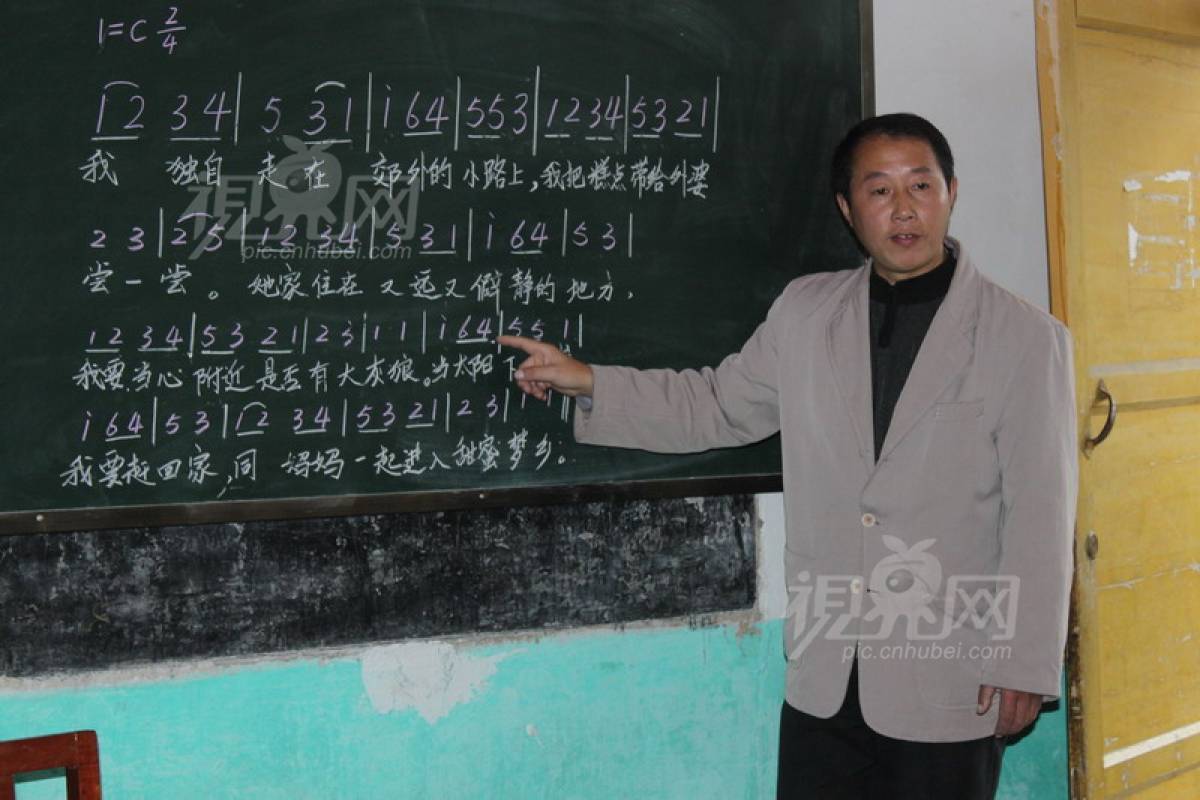 1=C 2/4
1 2 3 4 | 5 3 1 | i 6 4 | 5 5 3 | 1 2 3 4 | 5 3 2 1 |
我 独自 走在 郊外的小路上,我把糕点带给外婆
2 3 | 2 5 | 1 2 3 4 | 5 3 1 | i 6 4 | 5 3 |
尝一尝。她家住在又远又僻静的地方,
1 2 3 4 | 5 3 2 1 | 2 3 | 1 1 | i 6 4 | 5 5 1 |
我要当心附近是否有大灰狼。当太阳下
i 6 4 | 5 3 | 1 2 3 4 | 5 3 2 1 | 2 3 | 1 1 ||
我要赶回家,同妈妈一起进入甜蜜梦乡。
視界网
pic.cnhubei.com
視界网
pic.cnhubei.com